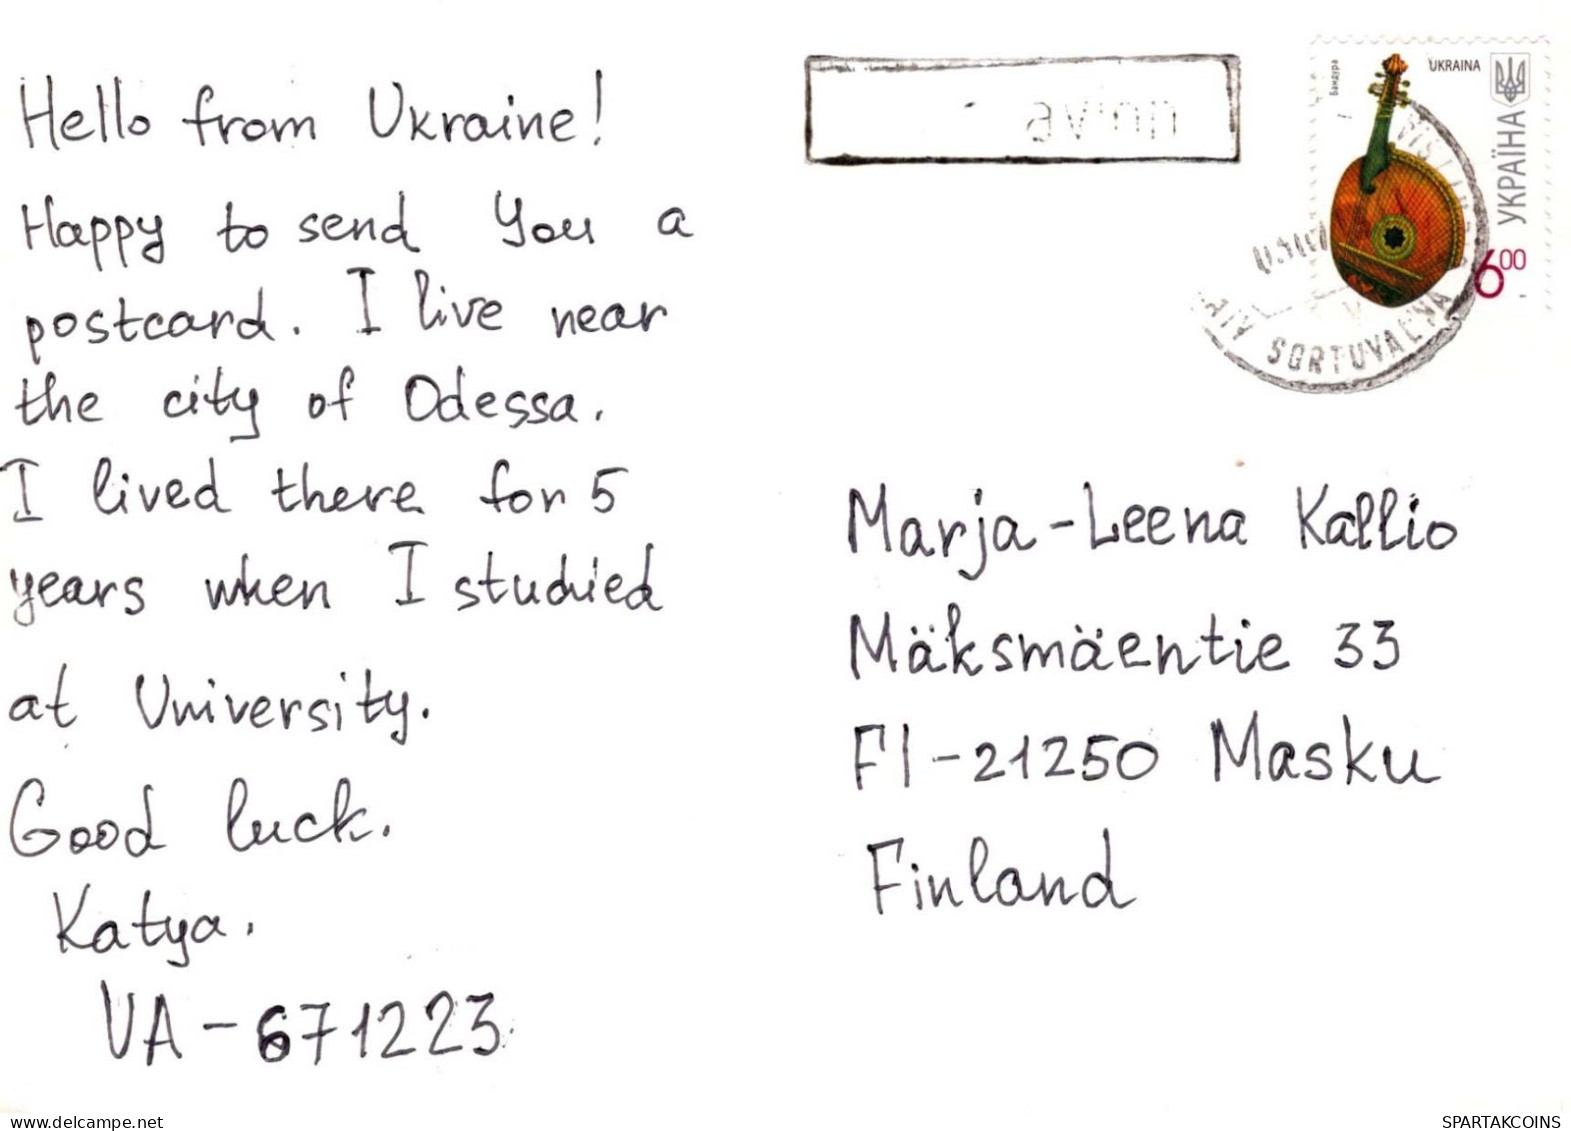 Hello from Ukraine!
Happy to send you a
postcard. I live near
the city of Odessa.
I lived there for 5
years when I studied
at University.
Good luck.
Katya.
UA-671223
Бандура
UKRAINA
УКРАЇНА
6 00
SORTUVAL'NA
Marja-Leena Kallio
Mäksmäentie 33
FI-21250 Masku
Finland
www.delcampe.net
SPARTAKCOINS